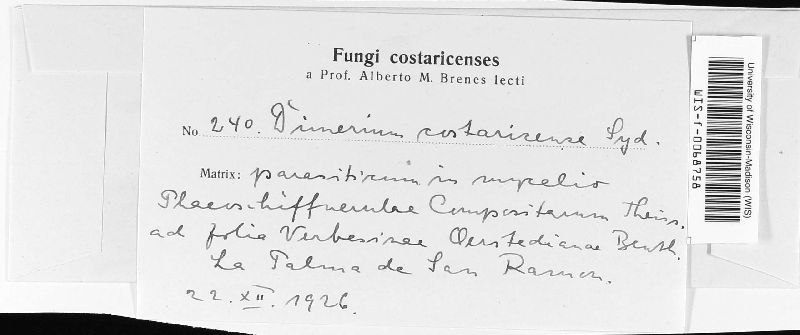 Fungi costaricenses
a Prof. Alberto M. Brenes lecti
No 240. Dimerium costaricense Syd.
Matrix: parasiticum in mycelio
Phaeoschiffnerulae Compositarum Theiss.
ad folia Verbesinae Oerstedianae Benth.
La Palma de San Ramon.
22. XII. 1926.
University of Wisconsin-Madison (WIS)
WIS-f-0068758